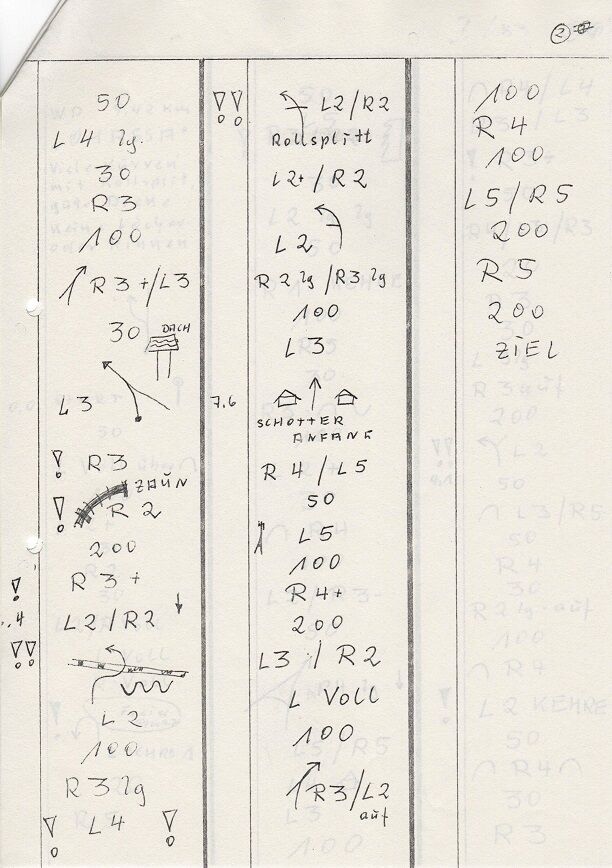 2
50
L4 lg.
30
R3
100
R3+/L3
30
DACH
L3
! R3
ZAUN
! R2
200
! R3+
..4 L2/R2
!!
L2
100
R3lg
! L4 !
!! L2/R2
Rollsplitt
L2+/R2
L2
R2lg/R3lg
100
L3
7.6
SCHOTTER
ANFANG
R4/L5
50
L5
100
R4+
200
L3/R2
L VOLL
100
R3/L2
auf
100
R4
100
L5/R5
200
R5
200
ZIEL